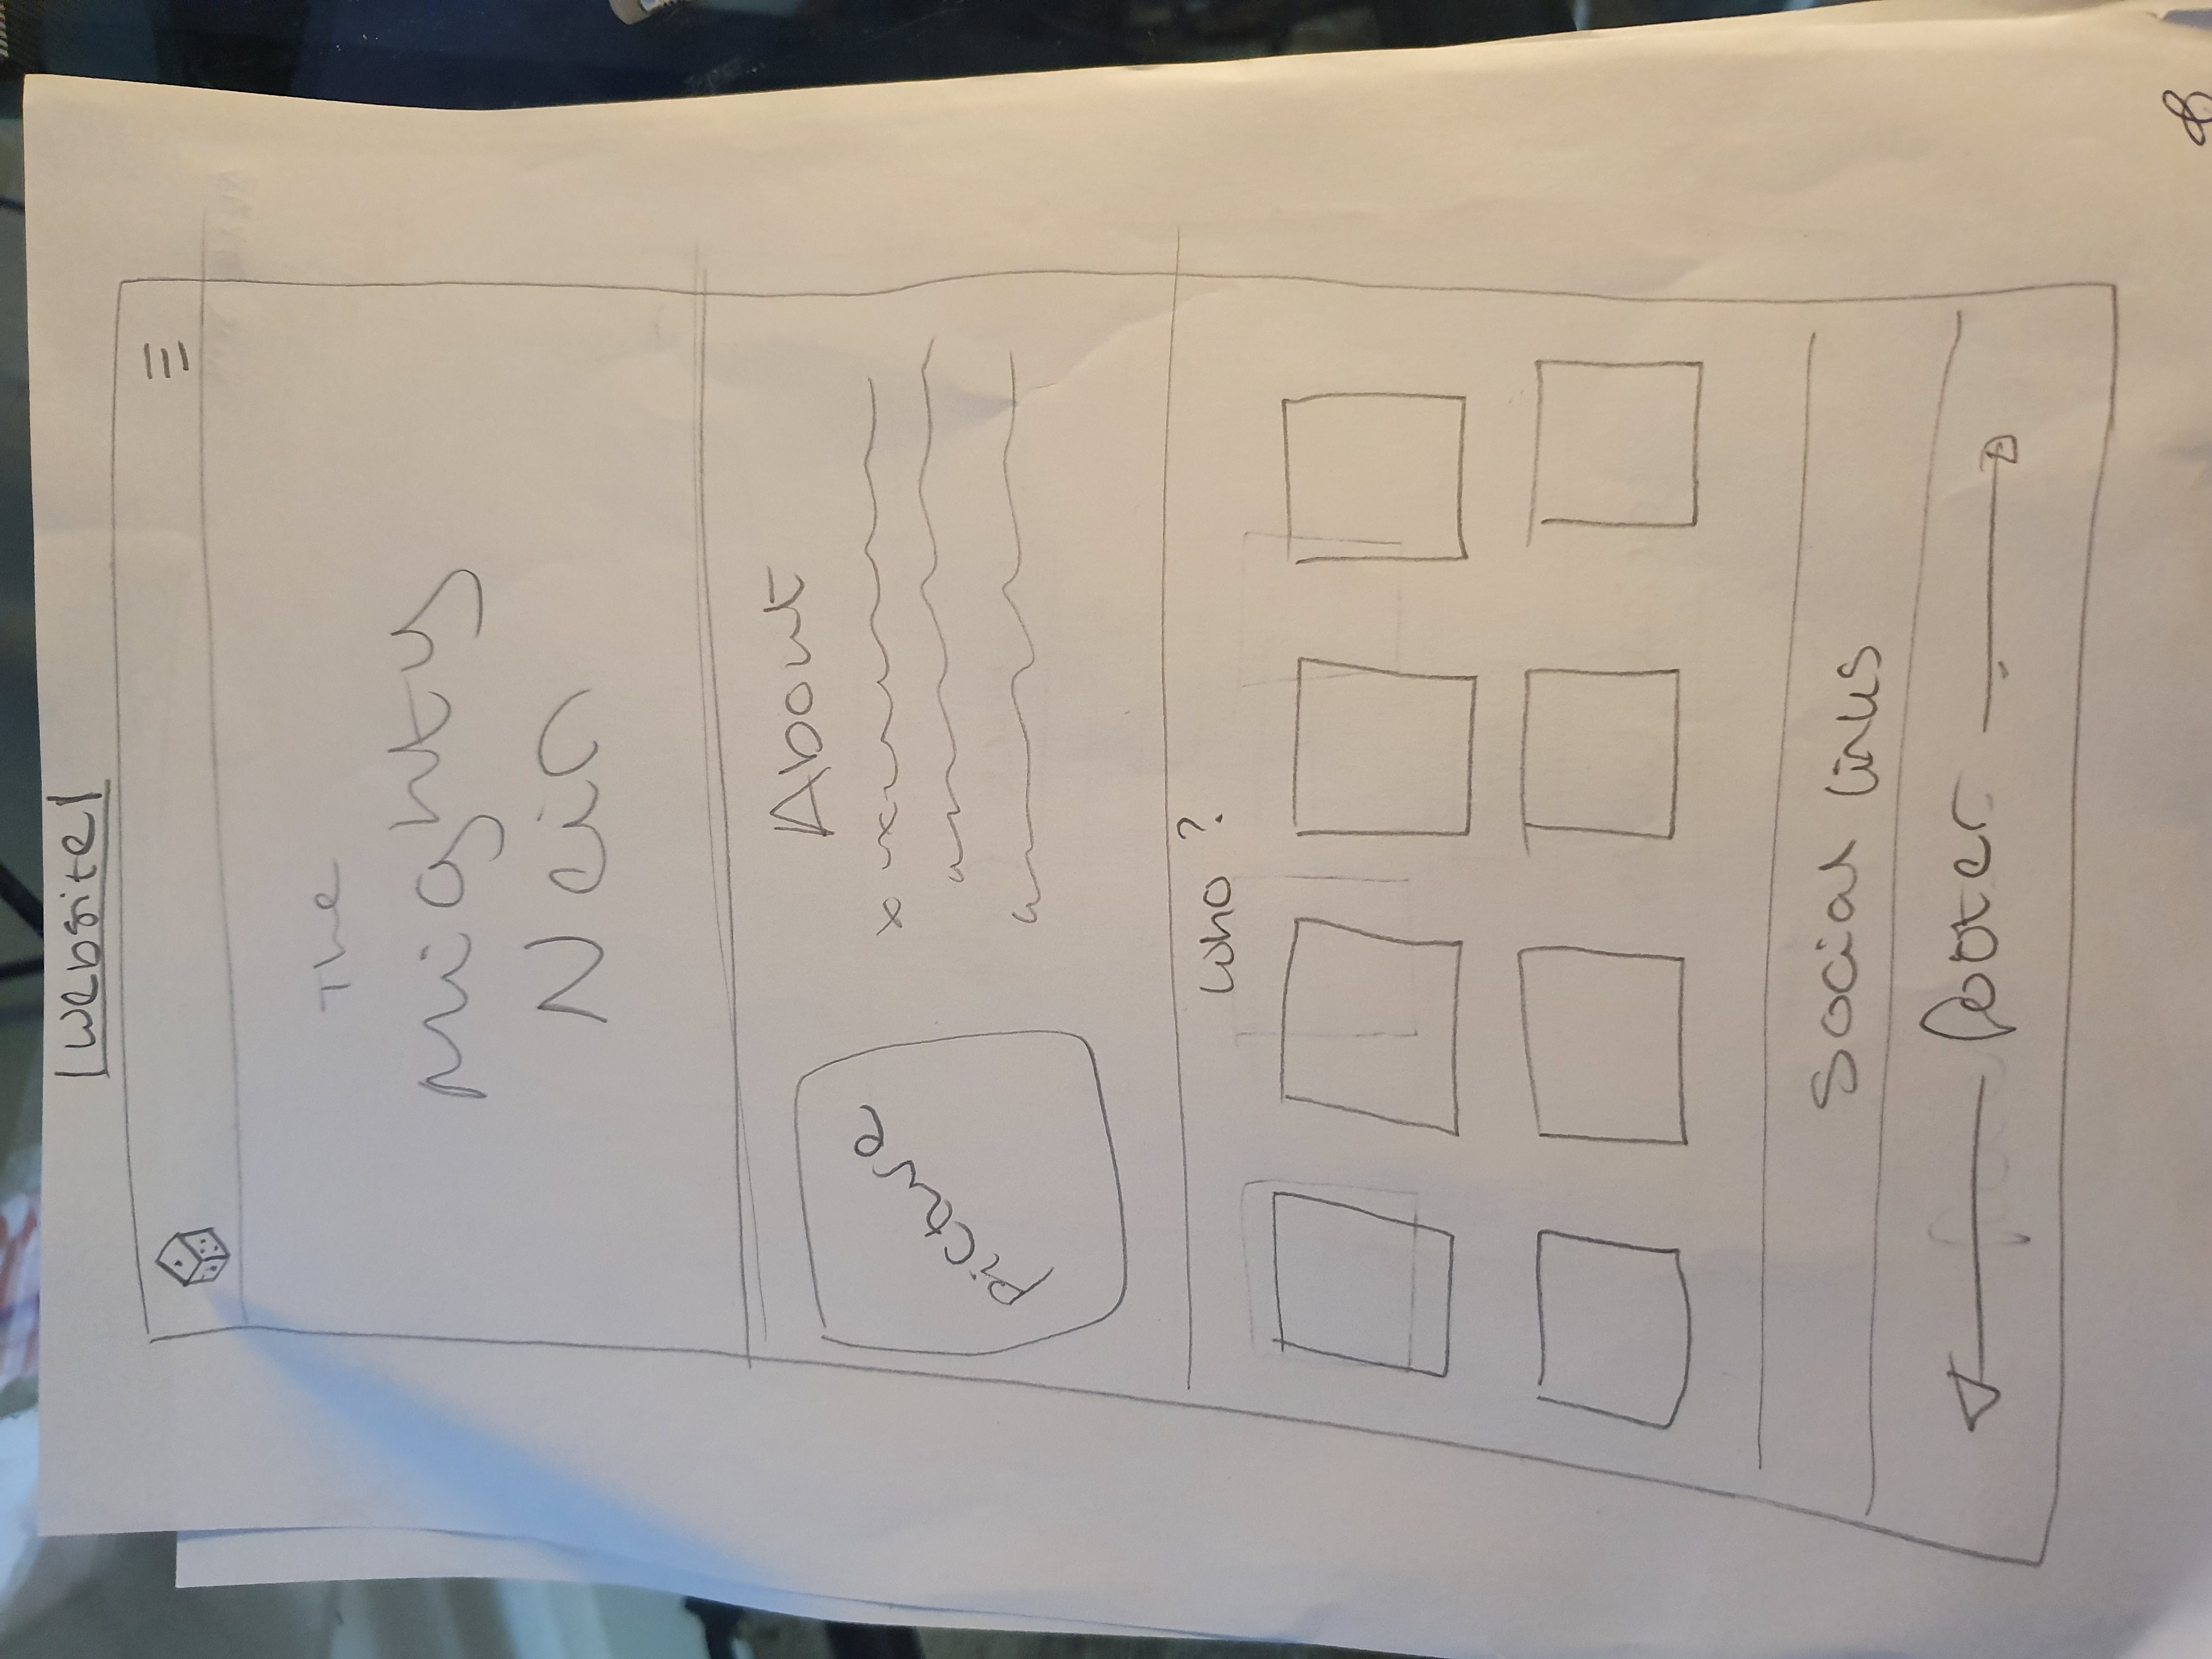 Website
The
Mighty
Nein
About
Picture
Who ?
Social links
footer